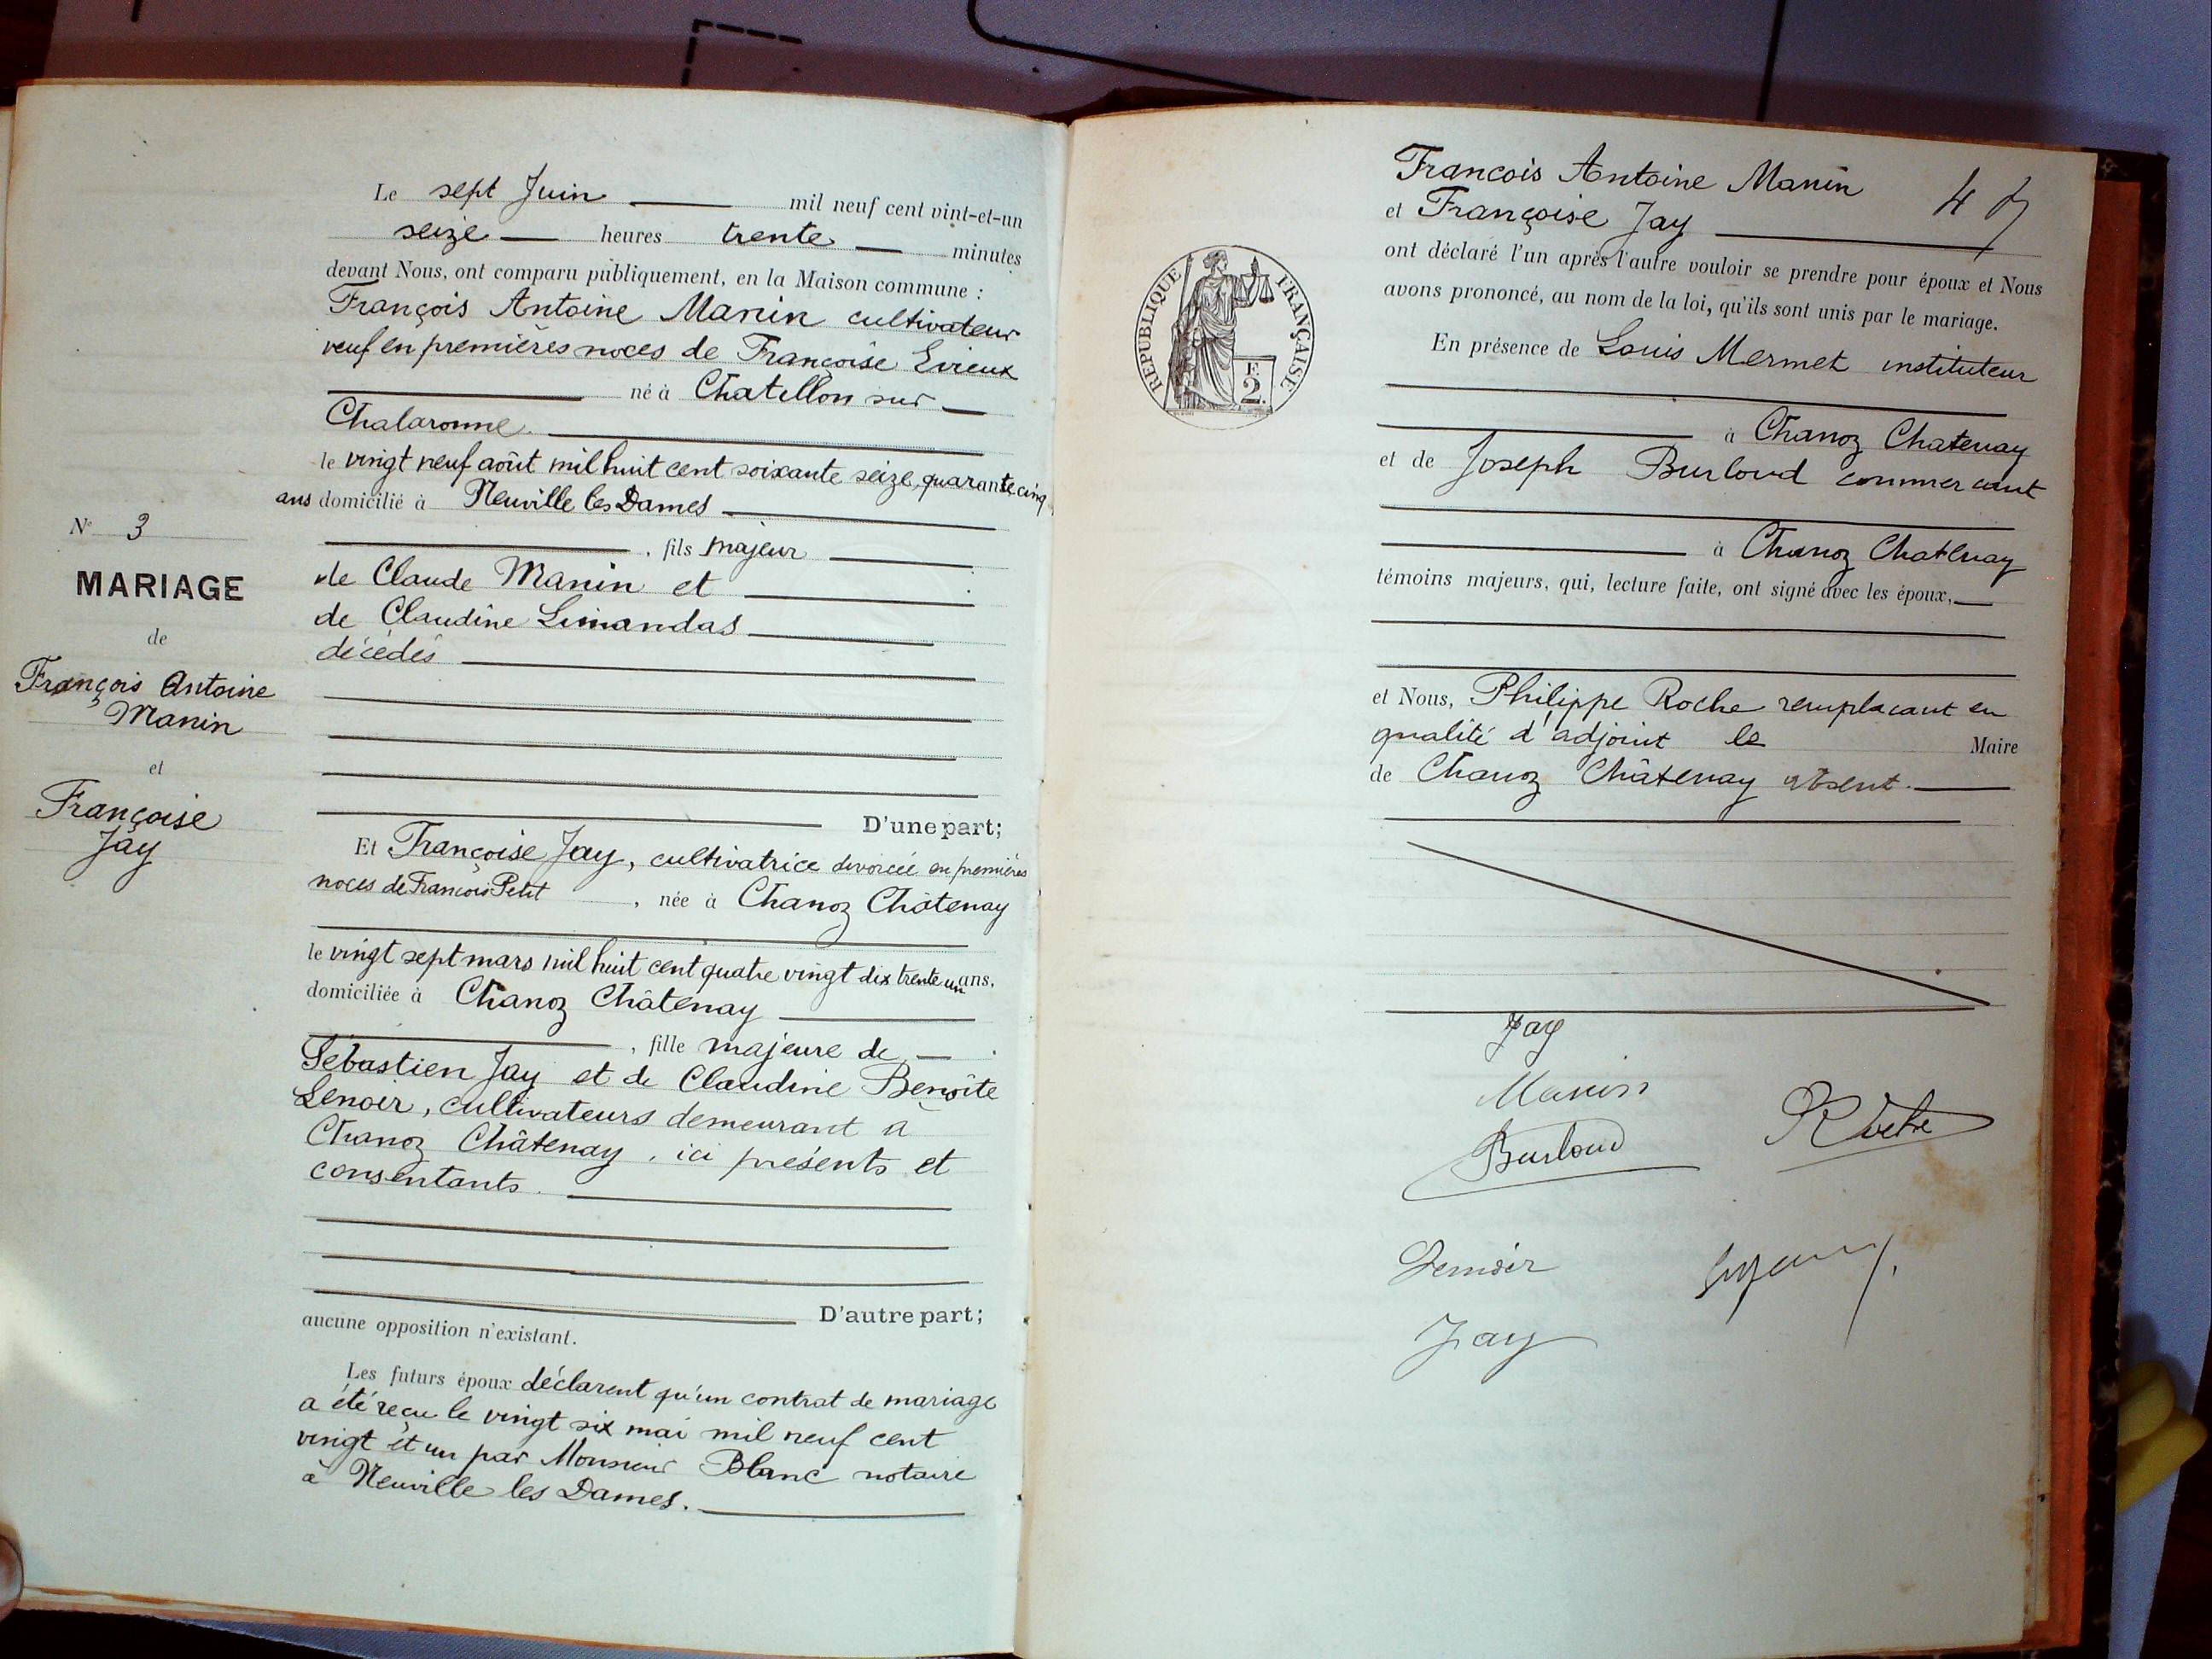 Le sept Juin mil neuf cent vint-et-un
seize heures trente minutes
devant Nous, ont comparu publiquement, en la Maison commune :
François Antoine Manin cultivateur
veuf en premières noces de Françoise Evieux
né à Chatillon sur
Chalaronne.
le vingt neuf août mil huit cent soixante seize, quarante cinq
ans domicilié à Neuville les Dames
, fils majeur
de Claude Manin et
de Claudine Limandas
décédés
D'une part;
Et Françoise Jay, cultivatrice divorcée en premières
noces de François Petit , née à Chanoz Châtenay
le vingt sept mars mil huit cent quatre vingt dix trente un ans,
domiciliée à Chanoz Châtenay
, fille majeure de
Sébastien Jay et de Claudine Benoîte
Lenoir, cultivateurs demeurant à
Chanoz Châtenay, ici présents et
consentants.
D'autre part;
aucune opposition n'existant.
Les futurs époux déclarent qu'un contrat de mariage
a été reçu le vingt six mai mil neuf cent
vingt et un par Monsieur Blanc notaire
à Neuville les Dames.
N° 3
MARIAGE
de
François Antoine
Manin
et
Françoise
Jay
Francois Antoine Manin
et Françoise Jay
ont déclaré l'un après l'autre vouloir se prendre pour époux et Nous
avons prononcé, au nom de la loi, qu'ils sont unis par le mariage.
En présence de Louis Mermet instituteur
à Chanoz Chatenay
et de Joseph Burloud commercant
à Chanoz Chatenay
témoins majeurs, qui, lecture faite, ont signé avec les époux,
et Nous, Philippe Roche remplacant en
qualité d'adjoint le Maire
de Chanoz Châtenay absent.
RÉPUBLIQUE FRANÇAISE
F.
2.
Jay
Manin
Burloud
Roche
Lenoir
Jay